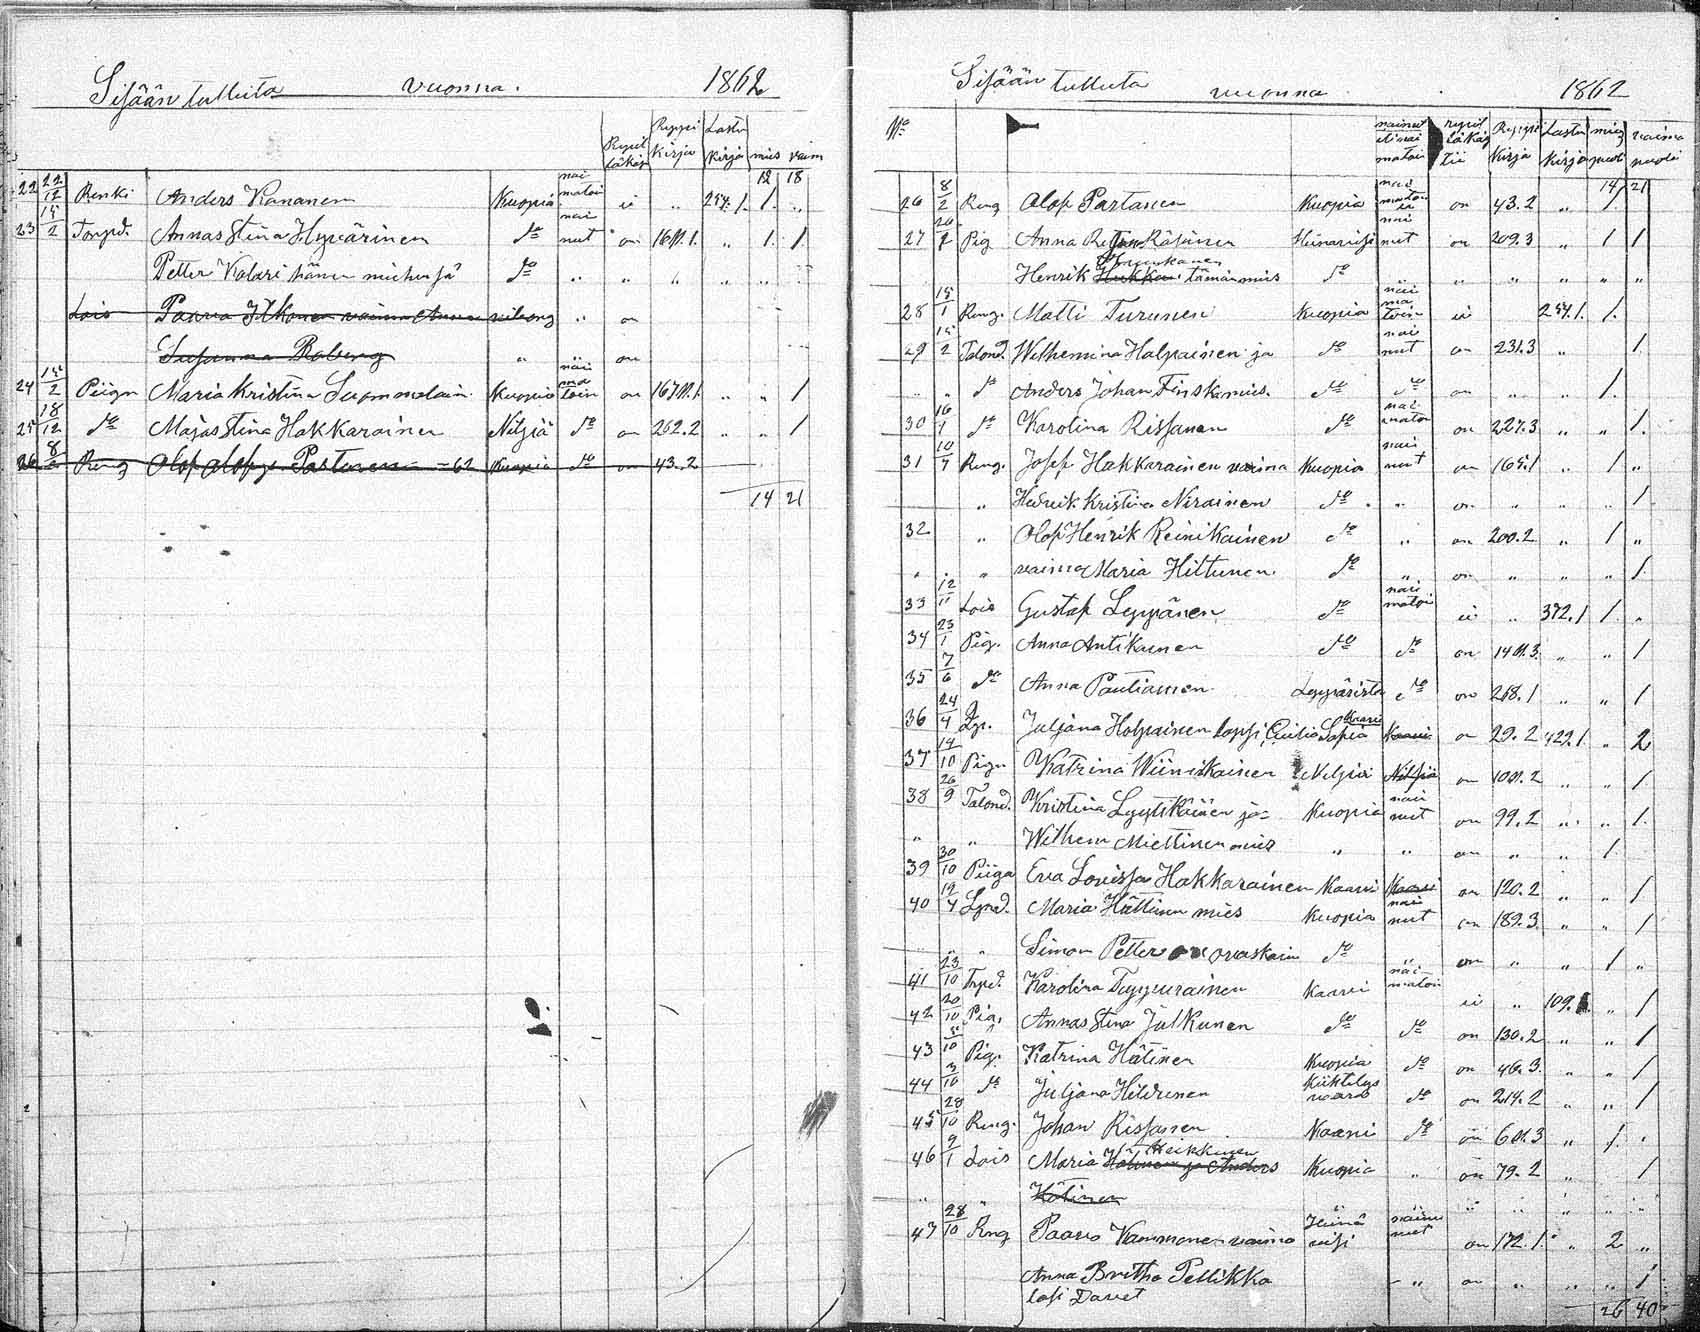 Sisään tulleita vuonna. 1862
Rippi kirja Lastu kirja mies vaim
12 18
22 22/12 Renki Anders Kananen Kuopia nai matoi ei „ 254.1. 1. „
23 15/2 Torpd. Annas Stina Hyvärinen do nai nut on 161.1. „ 1. 1
Petter Kolari hänen miehensä do „ „ „ „ „ „
Lois Paavo Ilkonen vaimo Anna „ on
Susanna Roberg „ on
24 15/2 Piign Maria Kristina Suommolain Kuopio nai ma toin on 167.1. „ „ 1
25 18/12 do Majas Stina Hakkarainen Nilsiä do on 262.2 „ „ 1
26 8/2 Reng Olof Olofss Partanen - 62 Kuopia do on 43.2
14 21
Sisään tulleita vuonna 1862
No nainut eli nai matoin Rippi kirja Lastu kirja mies puoli vaimo puoli
14 21
26 8/2 Reng Olof Partanen Kuopia nai matoin on 43.2 „ 1.
27 Pig Anna Räsänen Heinävesi nai nut on 209.3 „ 1 1
Henrik Hukka tämän mies do „ „ „ „ „
28 15/1 Reng. Matti Turunen Kuopia nai ma toin ei 254.1. 1.
29 15/2 Talond. Wilhemina Halpainen ja do nai nut on 231.3 „ 1.
„ do Anders Johan Finsk mies. do do on „ „ 1.
30 16/1 do Karolina Rissanen do nai maton on 227.3 „ „ 1.
31 10/7 Reng. Josef Hakkarainen vaimo Kuopia nai nut on 165.1 „ 1 „
„ Hedvik Kristina Nirainen do „ on „ „ „ 1
32 „ Olof Henrik Reinikainen do „ on 200.2 „ 1 „
„ „ vaimo Maria Hiltunen. do „ on „ „ „ 1.
33 12/11 Lois Gustaf Leppänen do nai matoi ei „ 372.1 1. „
34 23/1 Pig. Anna Antikainen do do on 141.3. „ „ 1
35 7/6 do Anna Pautiainen Leppävirta do on 268.1 „ „ 1
36 24/4 Lp. Juljana Holpainen lapsi Sofia Kaavi on 29.2 429.1. „ 2
37 14/10 Pign Katrina Wiiniskainen Nilsiä Nilsiä on 101.2 „ „ 1
38 26/9 Talond. Kristina Lyytikäinen ja Kuopia nai nut on 99.2 „ „ 1.
„ „ Wilhem Miettinen mies „ „ on „ „ 1
39 30/10 Piiga Eva Lovissa Hakkarainen Kaavi Kaavi on 120.2 „ „ 1
40 19/4 Lpnd. Maria Hättinen mies Kuopia nai nut on 189.3 „ „ 1
„ „ Simon Petter ovaskain do „ on „ „ 1 „
41 23/10 Trpd. Karolina Tuppurainen Kaavi nai matoi ei „ 109.1. „ 1
42 20/10 Pig, Annas Stina Julkunen do do on 130.2 „ „ 1
43 5/10 Pig. Katrina Hätinen Kuopia do on 46.3. „ „ 1
44 3/10 do Juljana Hildrenen Kiihtelys vaara do on 214.2 „ „ 1
45 28/10 Reng. Johan Rissanen Kaavi do on 61.3 „ 1. „
46 9/1 Lois Maria Heikkinen Hätinen ja Anders Kuopia „ on 79.2 „ 1
„ „ Hätinen „ „ „ „ „
47 28/10 Reng Paavo Kammonen vaimo Heinä vesi nainu nut on 172.1. „ 2 „
Anna Britha Pellikka „ on „ „ „ 1
lasi Davet
26 40